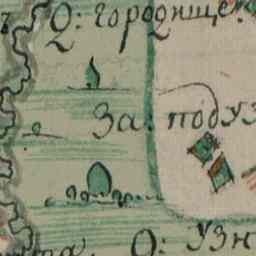 Q: городище:
За: подуз
Q: узн